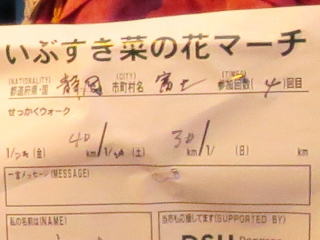 いぶすき菜の花マーチ
(NATIONALITY) (CITY) (TIMES)
都道府県・国 静岡 市町村名 富士 参加回数( 4 )回目
せっかくウォーク
40 30
(金) km (土) km (日) km
一言メッセージ(MESSAGE)
私の名前は(NAME) 当市も応援してます(SUPPORTED BY)